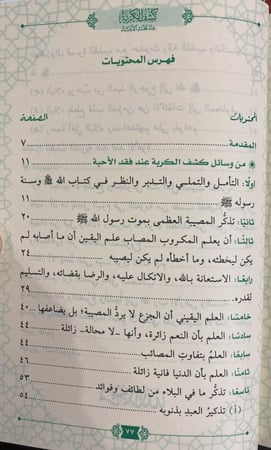 كشف الكربة
عند فقد الأحبة
فهرس المحتويات
المحتويات الصفحة
المقدمة ٧
من وسائل كشف الكربة عند فقد الأحبة ١١
أولًا: التأمل والتملي والتدبر والنظر في كتاب الله ﷻ وسنة
رسوله ﷺ ١١
ثانيًا: تذكُّر المصيبة العظمى بموت رسول الله ﷺ ٢٠
ثالثًا: أن يعلم المكروب المصاب علم اليقين أن ما أصابه لم
يكن ليخطئه، وما أخطأه لم يكن ليصيبه ٢٤
رابعًا: الاستعانة بالله، والاتكال عليه، والرضا بقضائه، والتسليم
لقدره. ٢٩
خامسًا: العلم اليقيني أن الجزع لا يردُّ المصيبة؛ بل يضاعفها ٤٠
سادسًا: العلم بأن النعم زائرة، وأنها -لا محالة- زائلة ٤٤
سابعًا: العلمُ بتفاوت المصائب ٤٤
ثامنًا: العلم بأن الدنيا فانية زائلة ٤٦
تاسعًا: تذكُّر ما في البلاء من لطائف وفوائد
(أ) تذكيرُ العبدِ بذنوبه ٥٤
٧٧